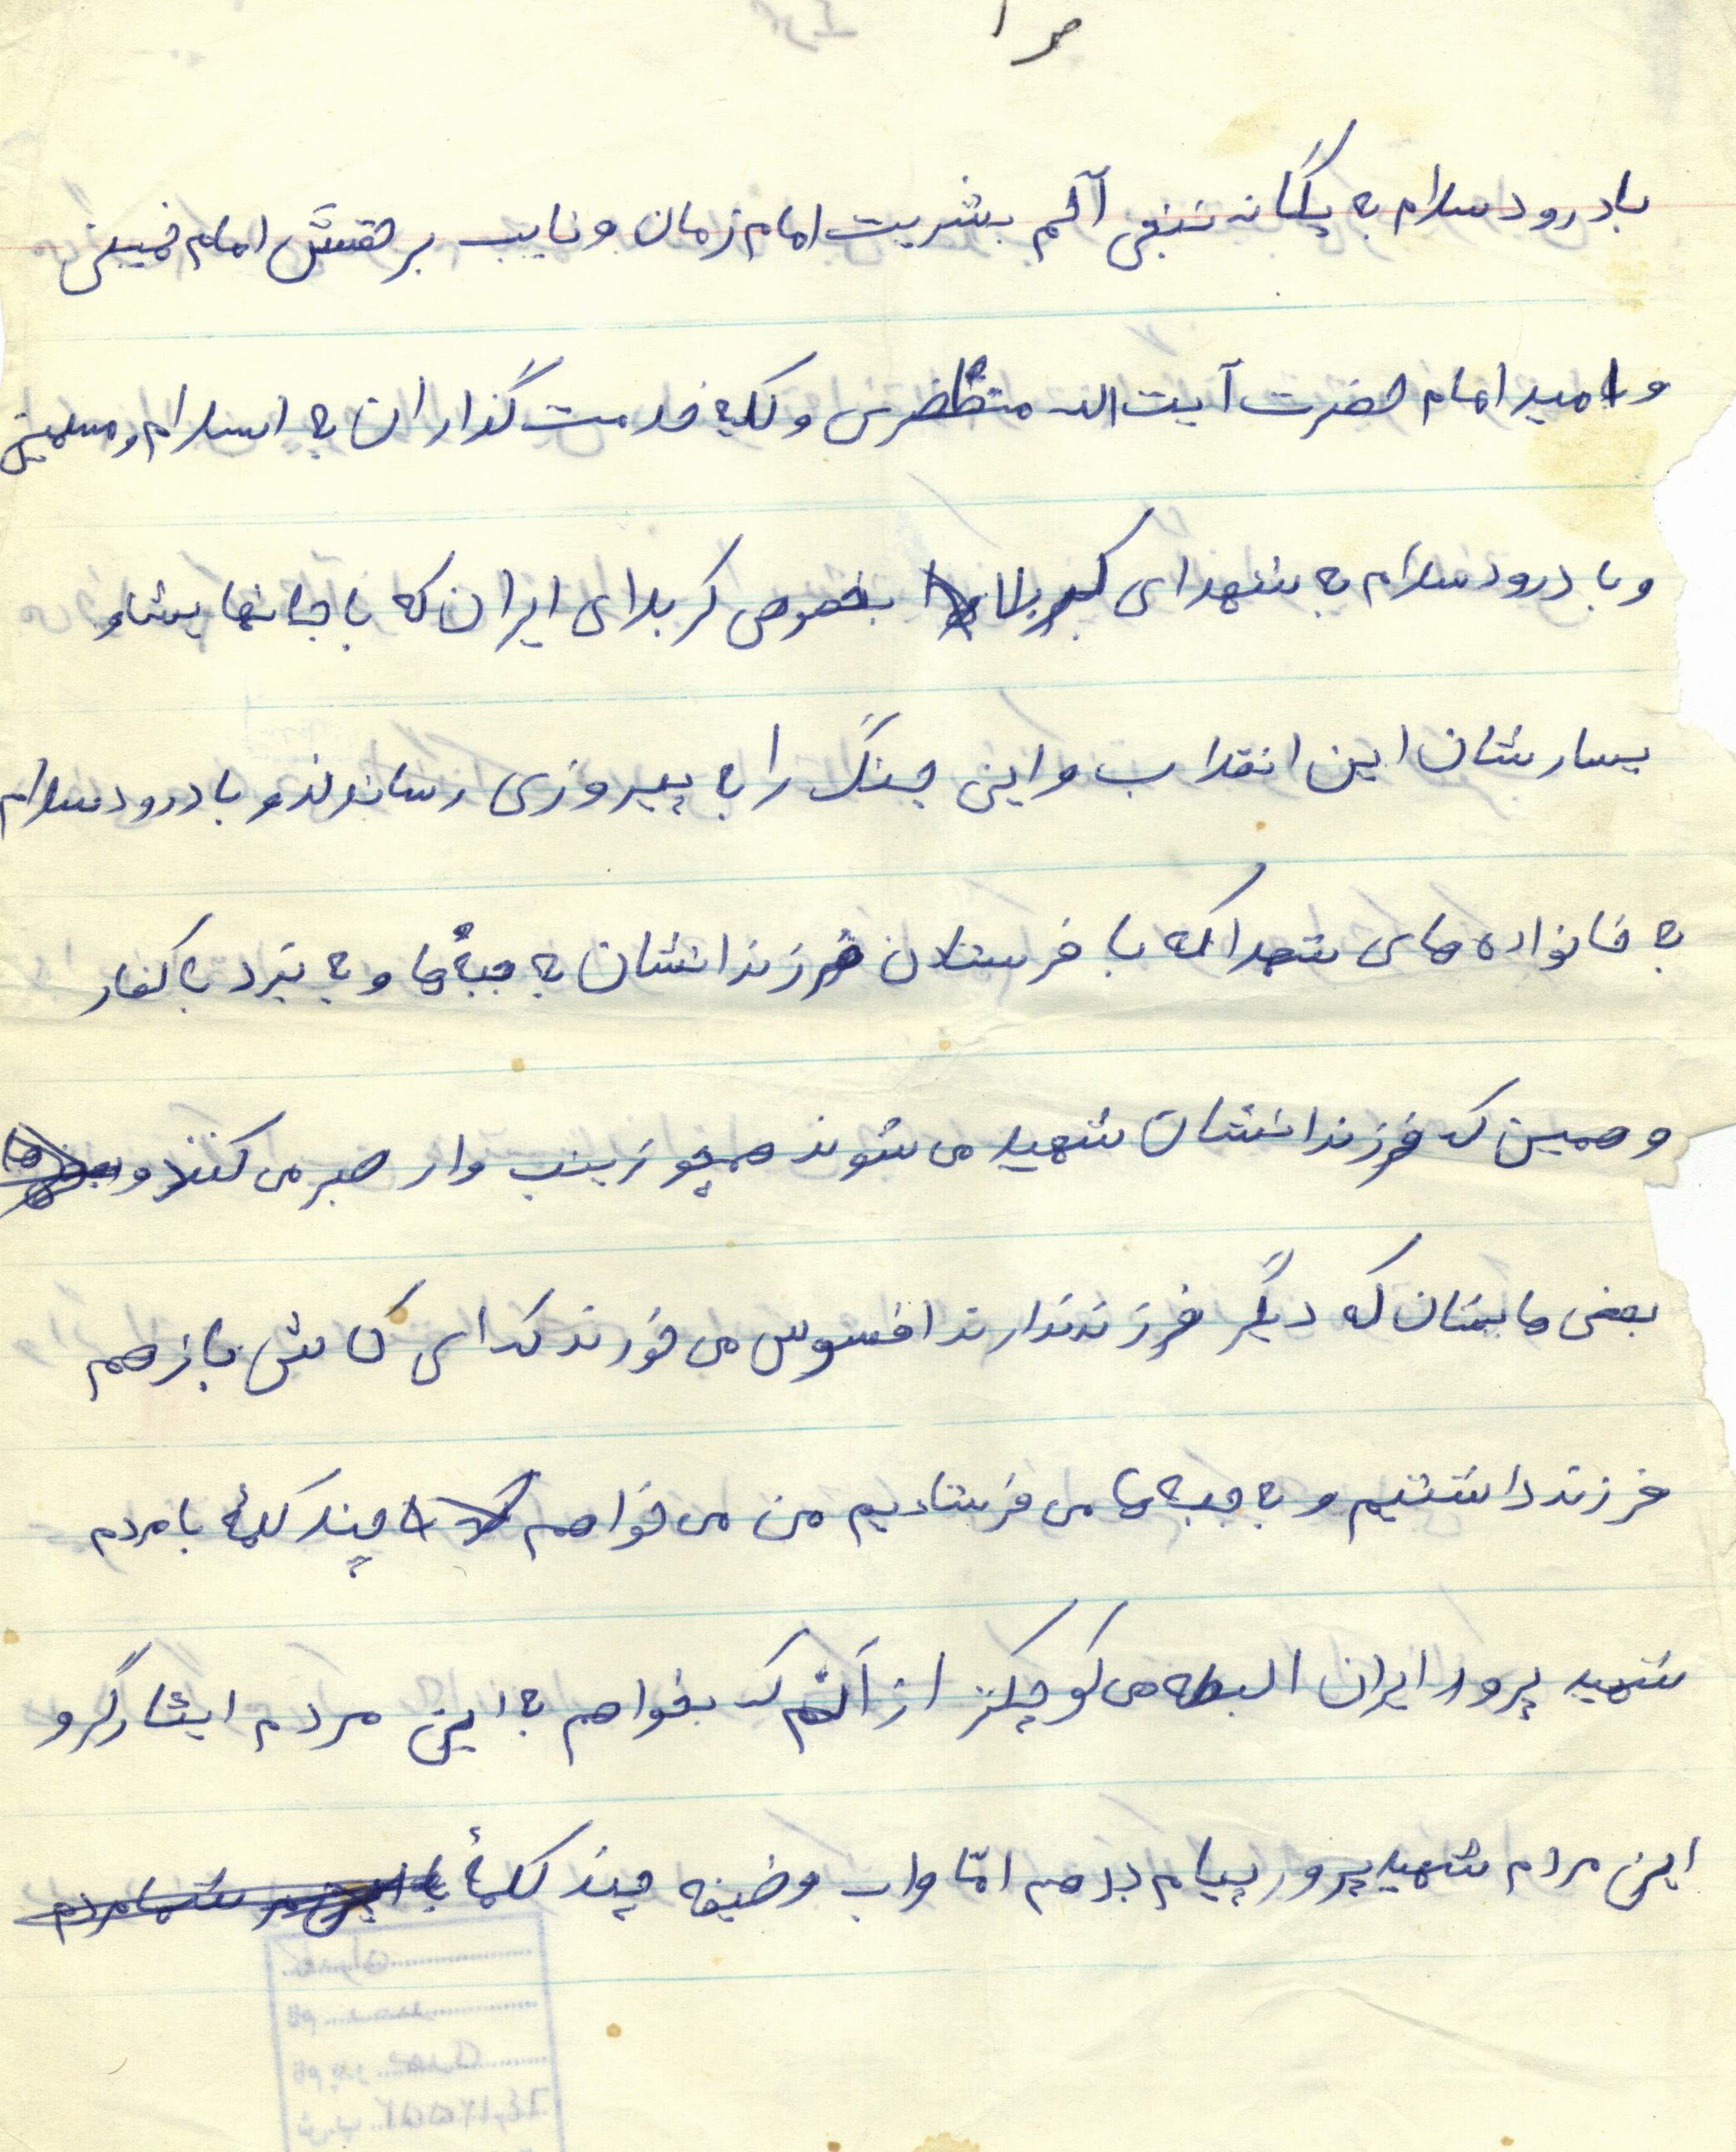 ص ۱
با درود سلام به یگانه منجی آلم بشریت امام زمان و نایب بر حقش امام خمینی
و امید امام حضرت آیت الله منتظری و کلیه خدمت گذاران به اسلام و مسلمین
و با درود سلام به شهدای کربلا بخصوص کربلای ایران که با جانهایشان و
یسارشان این انقلاب و این جنگ را به پیروزی رساندند و با درود سلام
به خانواده های شهدا که با فرستادن فرزندانشان به جبهٔ ها و به نبرد با کفار
و همین که فرزندانشان شهید می شوند همچو زینب وار صبر می کنند و
بعضی هایشان که دیگر فرزند ندارند افسوس می خورند که ای کاش باز هم
فرزند داشتیم و به جبهه ها می فرستادیم من می خواهم چند کلمهٔ با مردم
شهید پرور ایران البطه من کوچکتر از آنم که بخواهم به این مردم ایثارگر و
این مردم شهید پرور پیام بدهم امّا واب وضیفه چند کلمهٔ با این شما مردم